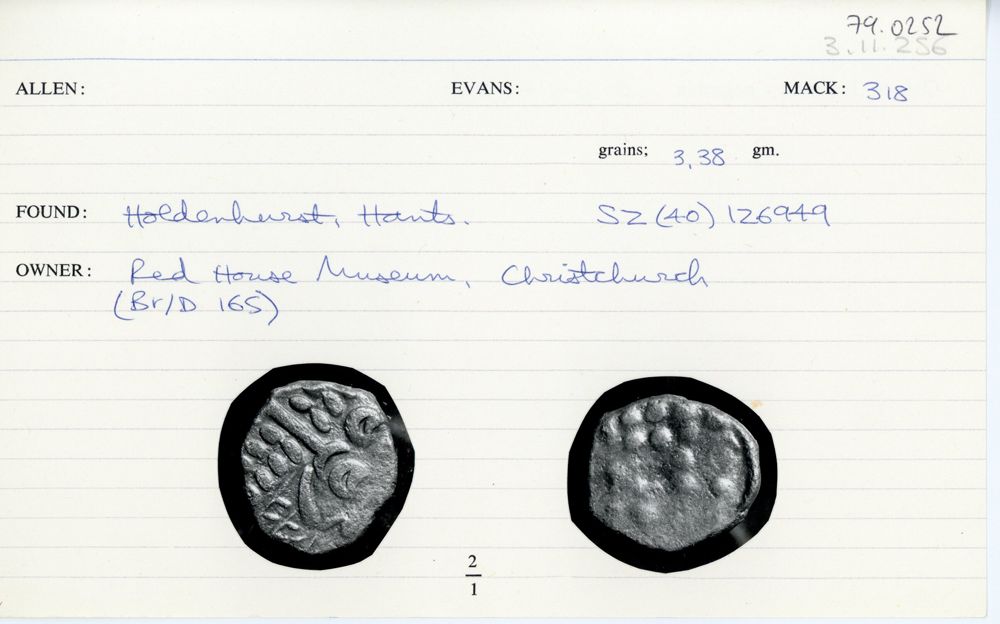 79.0252
3.11.256
ALLEN: EVANS: MACK: 318
grains; 3,38 gm.
FOUND: Holdenhurst, Hants. SZ (40) 126949
OWNER: Red House Museum, Christchurch
(Br/D 165)
2
1